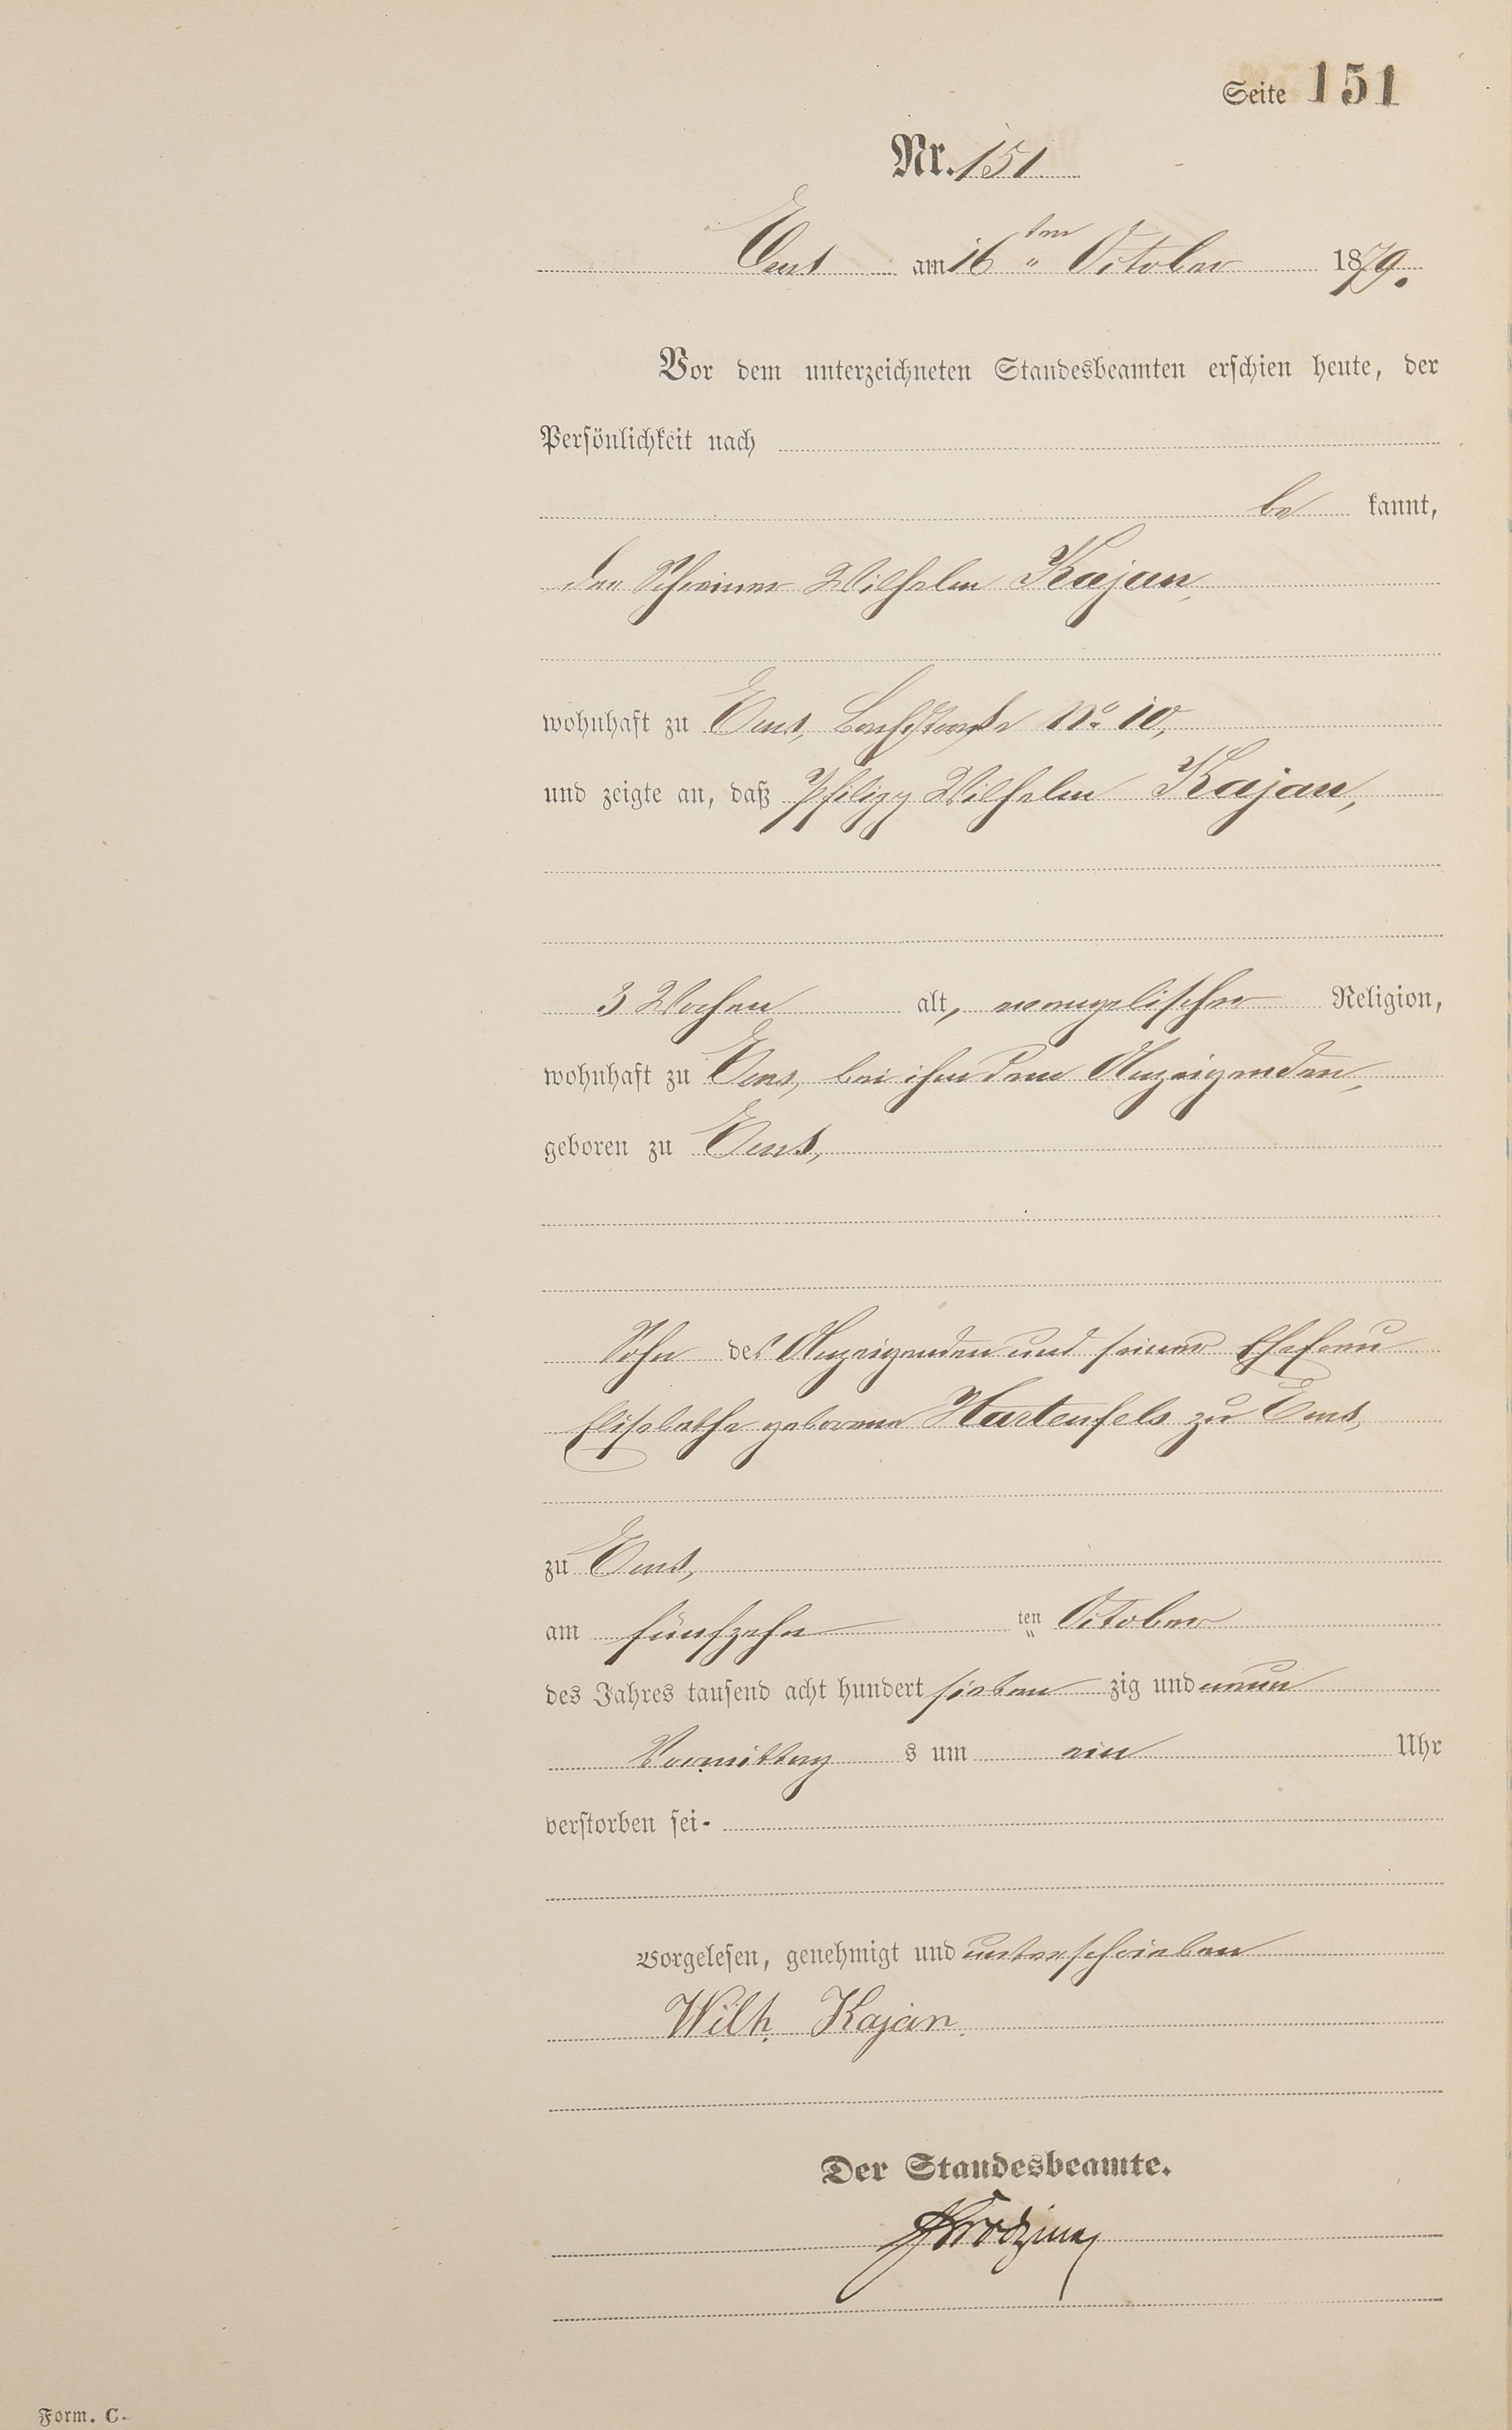 Seite 151
Nr. 151.
Ems am 16ten October 1879.
Vor dem unterzeichneten Standesbeamten erschien heute, der
Persönlichkeit nach
be kannt,
der Schreiner Wilhelm Kajan,
wohnhaft zu Ems, No 10,
und zeigte an, daß Philipp Wilhelm Kajan,
3 Wochen alt, evangelischer Religion,
wohnhaft zu Ems, bei ihm dem Anzeigenden,
geboren zu Ems,
Sohn des Anzeigenden und seiner Ehefrau
Elisabethe geborene Hartenfels zu Ems,
zu Ems,
am fünfzehn ten October
des Jahres tausend acht hundert sieben zig und neun
Vormittag s um ein Uhr
verstorben sei.
Vorgelesen, genehmigt und unterschrieben
Wilh. Kajan.
Der Standesbeamte.
Form. C.